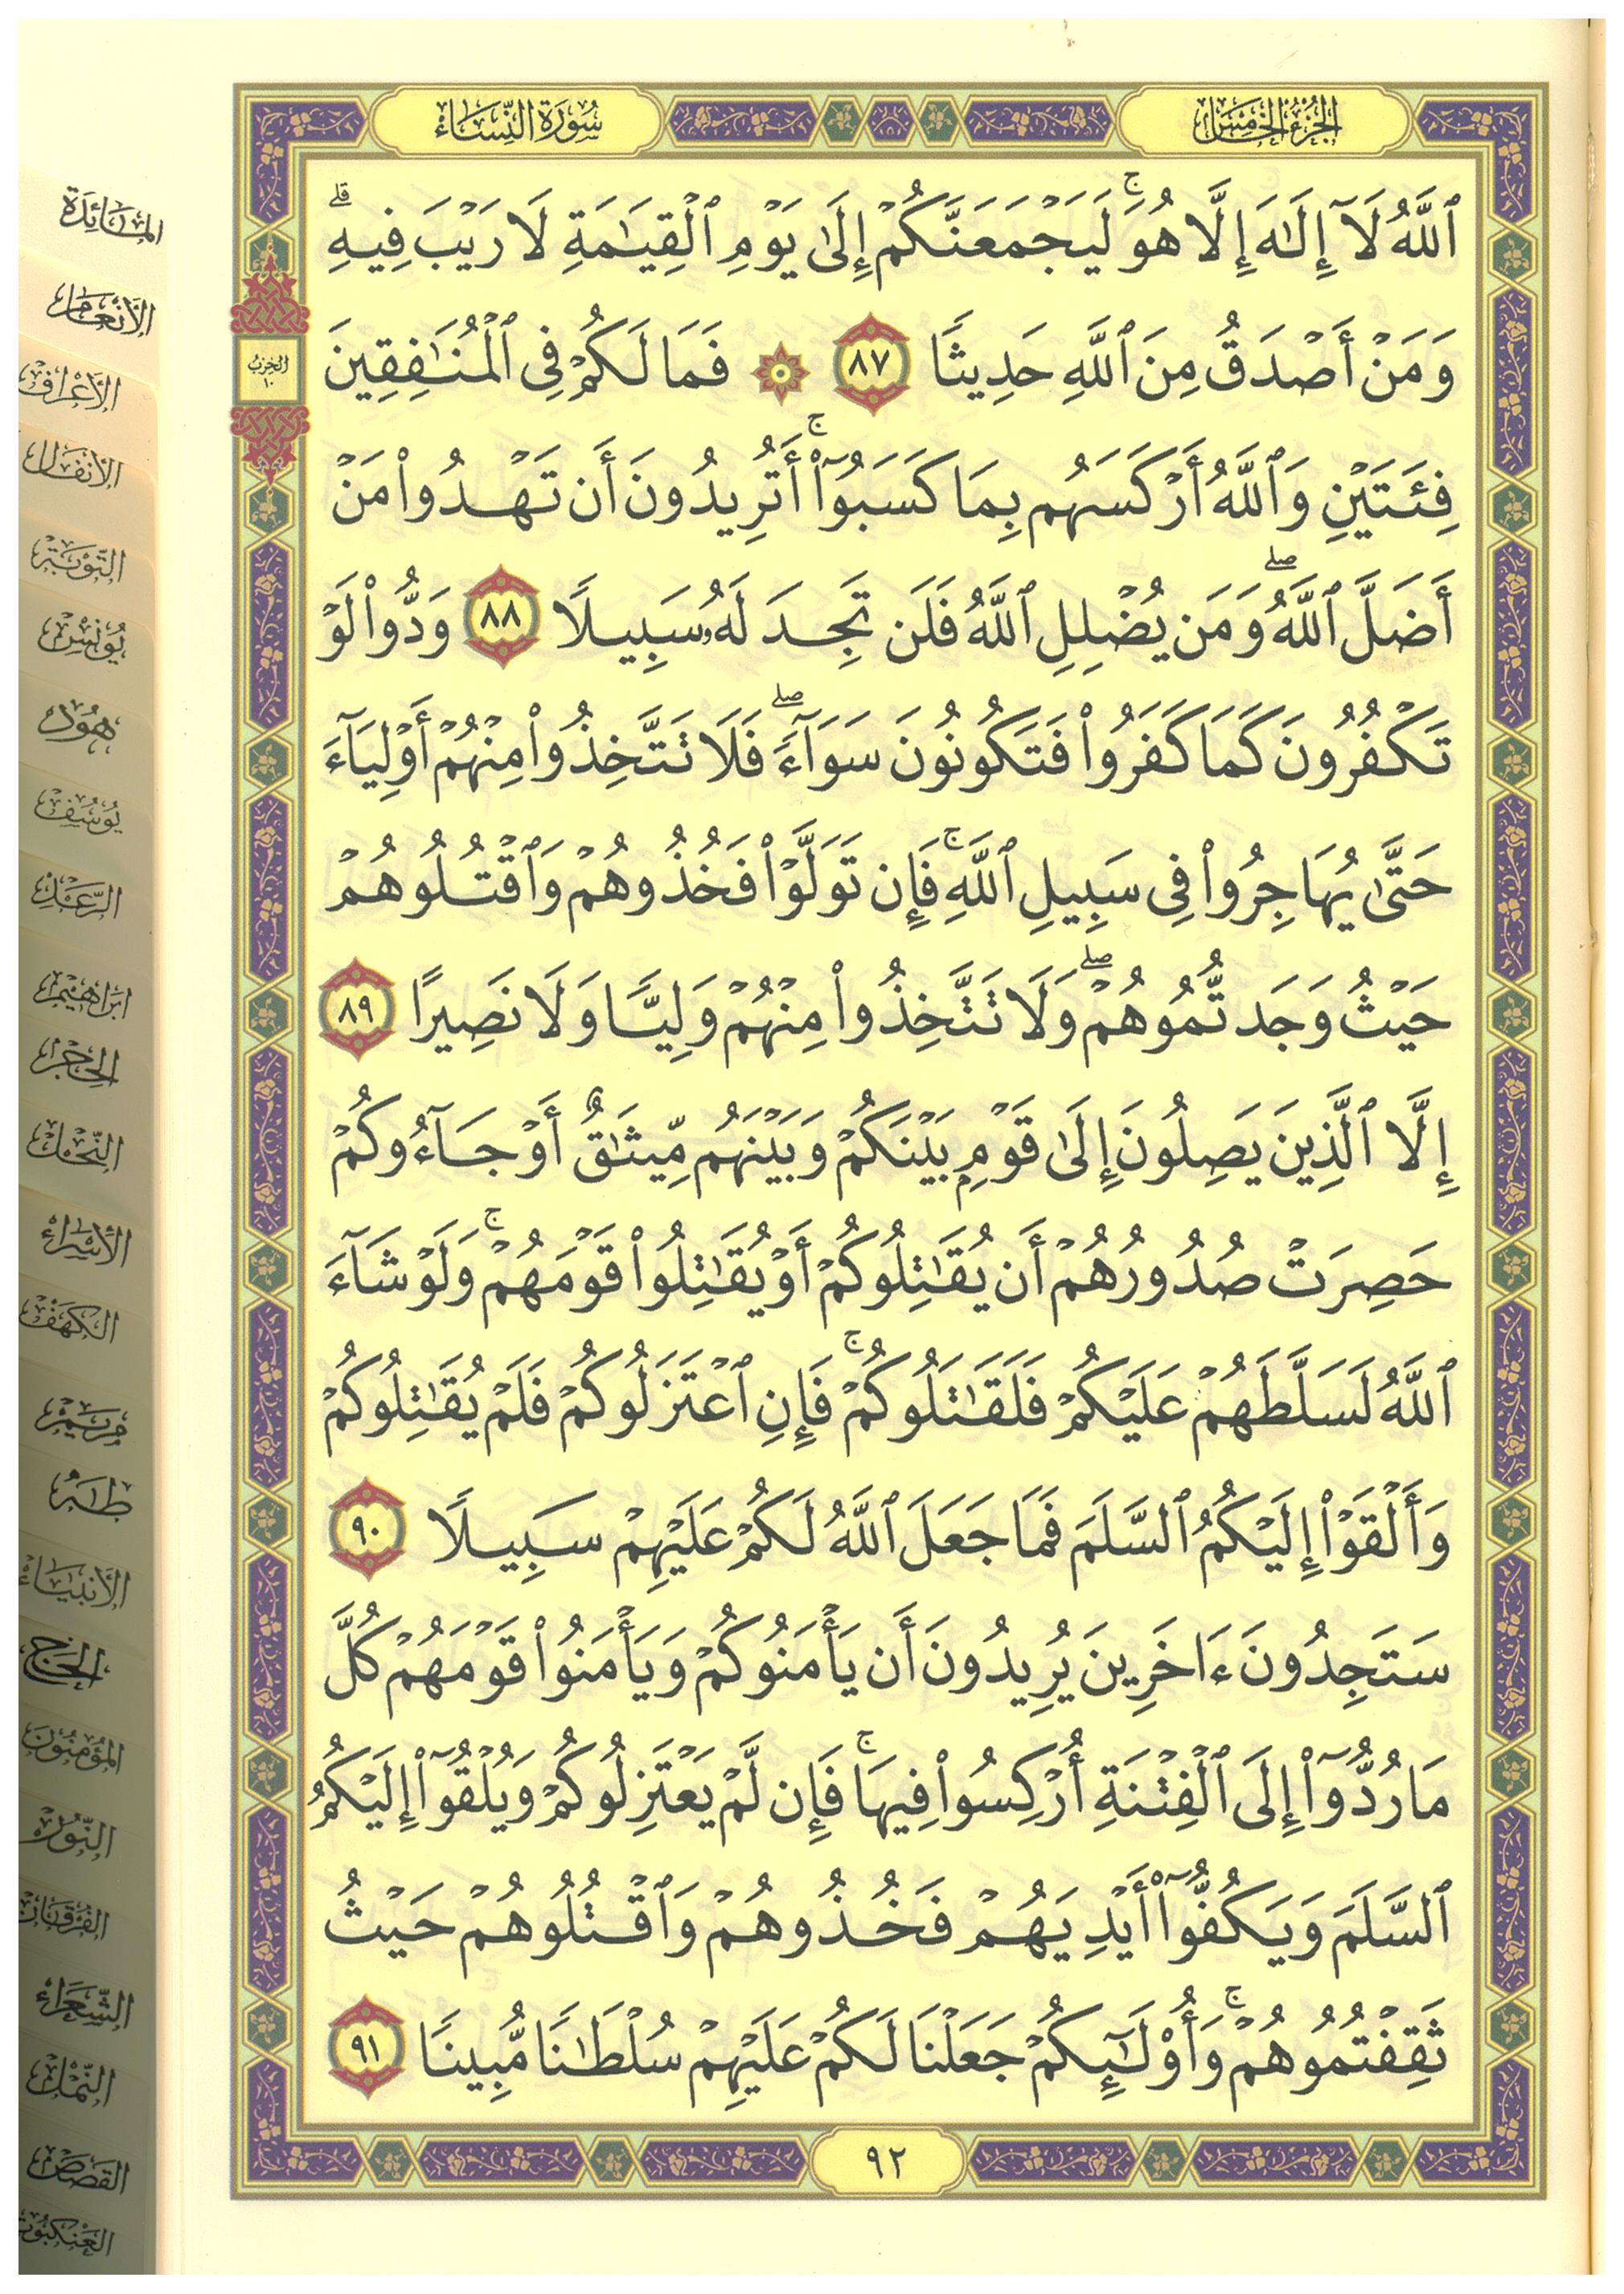 الجزء الخامس
سورة النساء
ٱللَّهُ لَآ إِلَٰهَ إِلَّا هُوَۚ لَيَجْمَعَنَّكُمْ إِلَىٰ يَوْمِ ٱلْقِيَٰمَةِ لَا رَيْبَ فِيهِۗ
وَمَنْ أَصْدَقُ مِنَ ٱللَّهِ حَدِيثًا ٨٧ ۞ فَمَا لَكُمْ فِى ٱلْمُنَٰفِقِينَ
فِئَتَيْنِ وَٱللَّهُ أَرْكَسَهُم بِمَا كَسَبُوٓا۟ۚ أَتُرِيدُونَ أَن تَهْدُوا۟ مَنْ
أَضَلَّ ٱللَّهُۖ وَمَن يُضْلِلِ ٱللَّهُ فَلَن تَجِدَ لَهُۥ سَبِيلًا ٨٨ وَدُّوا۟ لَوْ
تَكْفُرُونَ كَمَا كَفَرُوا۟ فَتَكُونُونَ سَوَآءًۖ فَلَا تَتَّخِذُوا۟ مِنْهُمْ أَوْلِيَآءَ
حَتَّىٰ يُهَاجِرُوا۟ فِى سَبِيلِ ٱللَّهِۚ فَإِن تَوَلَّوْا۟ فَخُذُوهُمْ وَٱقْتُلُوهُمْ
حَيْثُ وَجَدتُّمُوهُمْۖ وَلَا تَتَّخِذُوا۟ مِنْهُمْ وَلِيًّا وَلَا نَصِيرًا ٨٩
إِلَّا ٱلَّذِينَ يَصِلُونَ إِلَىٰ قَوْمٍۭ بَيْنَكُمْ وَبَيْنَهُم مِّيثَٰقٌ أَوْ جَآءُوكُمْ
حَصِرَتْ صُدُورُهُمْ أَن يُقَٰتِلُوكُمْ أَوْ يُقَٰتِلُوا۟ قَوْمَهُمْۚ وَلَوْ شَآءَ
ٱللَّهُ لَسَلَّطَهُمْ عَلَيْكُمْ فَلَقَٰتَلُوكُمْۚ فَإِنِ ٱعْتَزَلُوكُمْ فَلَمْ يُقَٰتِلُوكُمْ
وَأَلْقَوْا۟ إِلَيْكُمُ ٱلسَّلَمَ فَمَا جَعَلَ ٱللَّهُ لَكُمْ عَلَيْهِمْ سَبِيلًا ٩٠
سَتَجِدُونَ ءَاخَرِينَ يُرِيدُونَ أَن يَأْمَنُوكُمْ وَيَأْمَنُوا۟ قَوْمَهُمْ كُلَّ
مَا رُدُّوٓا۟ إِلَى ٱلْفِتْنَةِ أُرْكِسُوا۟ فِيهَاۚ فَإِن لَّمْ يَعْتَزِلُوكُمْ وَيُلْقُوٓا۟ إِلَيْكُمُ
ٱلسَّلَمَ وَيَكُفُّوٓا۟ أَيْدِيَهُمْ فَخُذُوهُمْ وَٱقْتُلُوهُمْ حَيْثُ
ثَقِفْتُمُوهُمْۚ وَأُو۟لَٰٓئِكُمْ جَعَلْنَا لَكُمْ عَلَيْهِمْ سُلْطَٰنًا مُّبِينًا ٩١
٩٢
الحزب
١٠
المائدة
الأنعام
الأعراف
الأنفال
التوبة
يونس
هود
يوسف
الرعد
ابراهيم
الحجر
النحل
الأسراء
الكهف
مريم
طه
الأنبياء
الحج
المؤمنون
النور
الفرقان
الشعراء
النمل
القصص
العنكبوت